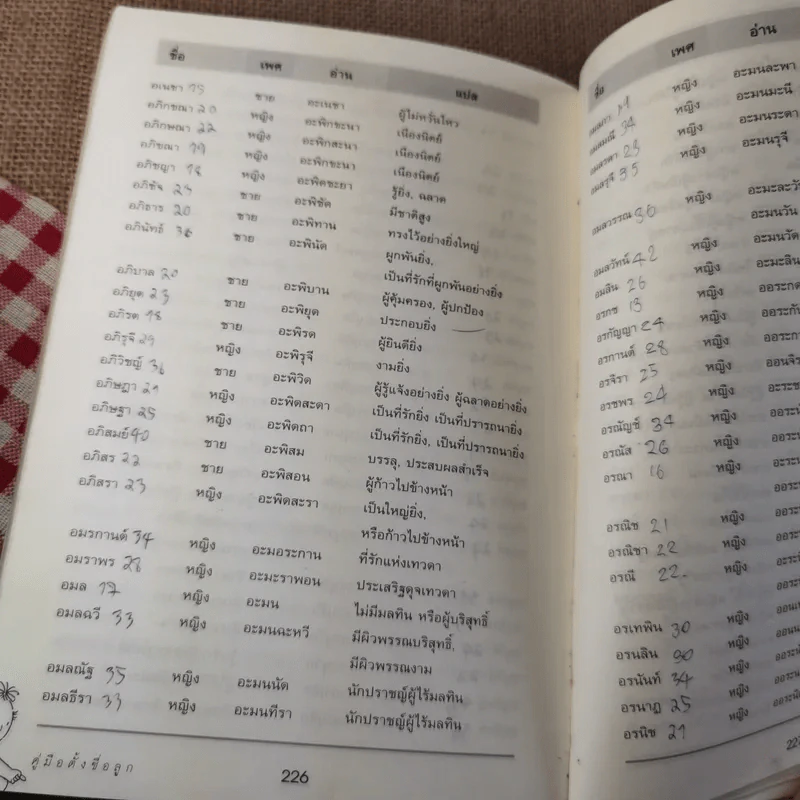 ชื่อ เพศ อ่าน แปล
อเนชา 15 ชาย อะเนชา ผู้ไม่หวั่นไหว
อภิกขณา 20 หญิง อะพิกขะนา เนืองนิตย์
อภิกษณา 22 หญิง อะพิกสะนา เนืองนิตย์
อภิขณา 19 หญิง อะพิกขะนา เนืองนิตย์
อภิชญา 18 หญิง อะพิดชะยา รู้ยิ่ง, ฉลาด
อภิชัจ 23 ชาย อะพิชัด มีชาติสูง
อภิธาร 20 ชาย อะพิทาน ทรงไว้อย่างยิ่งใหญ่
อภินัทธ์ 36 ชาย อะพินัด ผูกพันยิ่ง,
เป็นที่รักที่ผูกพันอย่างยิ่ง
อภิบาล 20 ชาย อะพิบาน ผู้คุ้มครอง, ผู้ปกป้อง
อภิยุต 23 ชาย อะพิยุด ประกอบยิ่ง
อภิรต 18 ชาย อะพิรด ผู้ยินดียิ่ง
อภิรุจี 29 หญิง อะพิรุจี งามยิ่ง
อภิวิชญ์ 36 ชาย อะพิวิด ผู้รู้แจ้งอย่างยิ่ง ผู้ฉลาดอย่างยิ่ง
อภิษฎา 21 หญิง อะพิดสะดา เป็นที่รักยิ่ง, เป็นที่ปรารถนายิ่ง
อภิษฐา 25 หญิง อะพิดถา เป็นที่รักยิ่ง, เป็นที่ปรารถนายิ่ง
อภิสมย์ 40 ชาย อะพิสม บรรลุ, ประสบผลสำเร็จ
อภิสร 22 ชาย อะพิสอน ผู้ก้าวไปข้างหน้า
อภิสรา 23 หญิง อะพิดสะรา เป็นใหญ่ยิ่ง,
หรือก้าวไปข้างหน้า
อมรกานต์ 34 หญิง อะมอระกาน ที่รักแห่งเทวดา
อมราพร 28 หญิง อะมะราพอน ประเสริฐดุจเทวดา
อมล 17 หญิง อะมน ไม่มีมลทิน หรือผู้บริสุทธิ์
อมลฉวี 33 หญิง อะมนฉะหวี มีผิวพรรณบริสุทธิ์,
มีผิวพรรณงาม
อมลณัฐ 35 หญิง อะมนนัด นักปราชญ์ผู้ไร้มลทิน
อมลธีรา 33 หญิง อะมนทีรา นักปราชญ์ผู้ไร้มลทิน
คู่มือตั้งชื่อลูก 226
ชื่อ เพศ อ่าน
อมลภา 17 หญิง อะมนละพา
อมลมณี 34 หญิง อะมนมะนี
อมลรดา 23 หญิง อะมนระดา
อมลรุจี 35 หญิง อะมนรุจี
อมลวรรณ 36 หญิง อะมะละวัน
อะมนวัน
อมลวัทน์ 42 หญิง อะมนวัด
อมสิน 26 หญิง อะมะสิน
อรกช 13 หญิง ออระกด
อรกัญญา 24 หญิง ออระกัน
อรกานต์ 28 หญิง ออระกา
อรจิรา 25 หญิง ออนจิร
อรชพร 24 หญิง อะระช
อรณัญช์ 34 หญิง
อรณัส 26 หญิง
อรณา 16 หญิง
อรณิช 21 หญิง
อรณิชา 22 หญิง
อรณี 22 หญิง
อรเทพิน 30 หญิง
อรนลิน 30 หญิง
อรนันท์ 34 หญิง
อรนาฏ 25 หญิง
อรนิช 21 หญิง